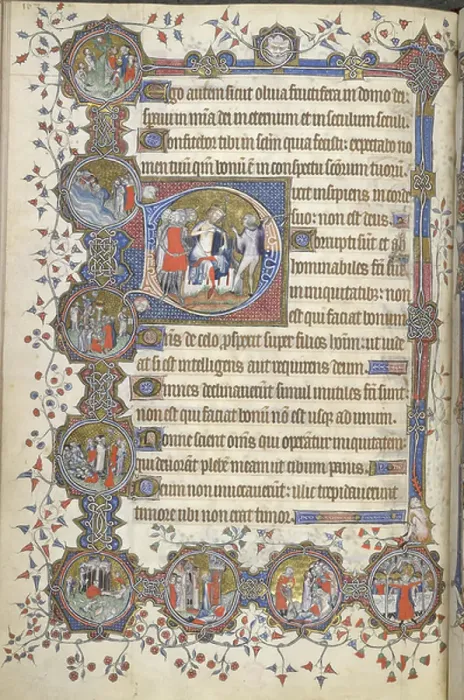 Ego autem sicut oliua fructifera in domo dei
speraui in mia dei in eternum et in seculum seculi
Confitebor tibi in sclm quia fecisti: expectabo no
men tuum qm bonum ē in conspectu scorum tuorum.
Dixit insipiens in corde
suo: non est deus
Corrupti sūt et ab
hominabiles fci sūt
in iniquitatibz: non
est qui faciat bonum
Dns de celo pspexit super filios hoīm: ut uide
at si est intelligens aut requirens deum
Omnes declinauerunt simul inutiles fci sunt
non est qui faciat bonū nō est usqz ad unum
Nonne scient oms qui operātur iniquitatem
qui deuorāt plebē meam ut cibum panis
Deum non inuocauerūt: illic trepidauerunt
timore ubi non erat timor